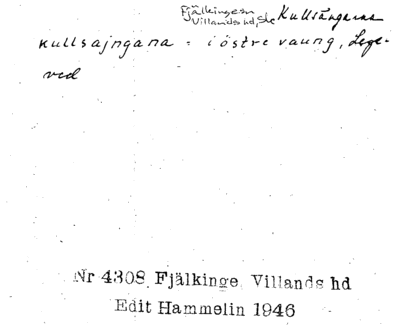 Fjälkinge sn
Villands hd, Sk Kullsängarna
kullsajngana : i östre vaung, Lege-
ved
Nr 4308 Fjälkinge, Villands hd
Edit Hammelin 1946